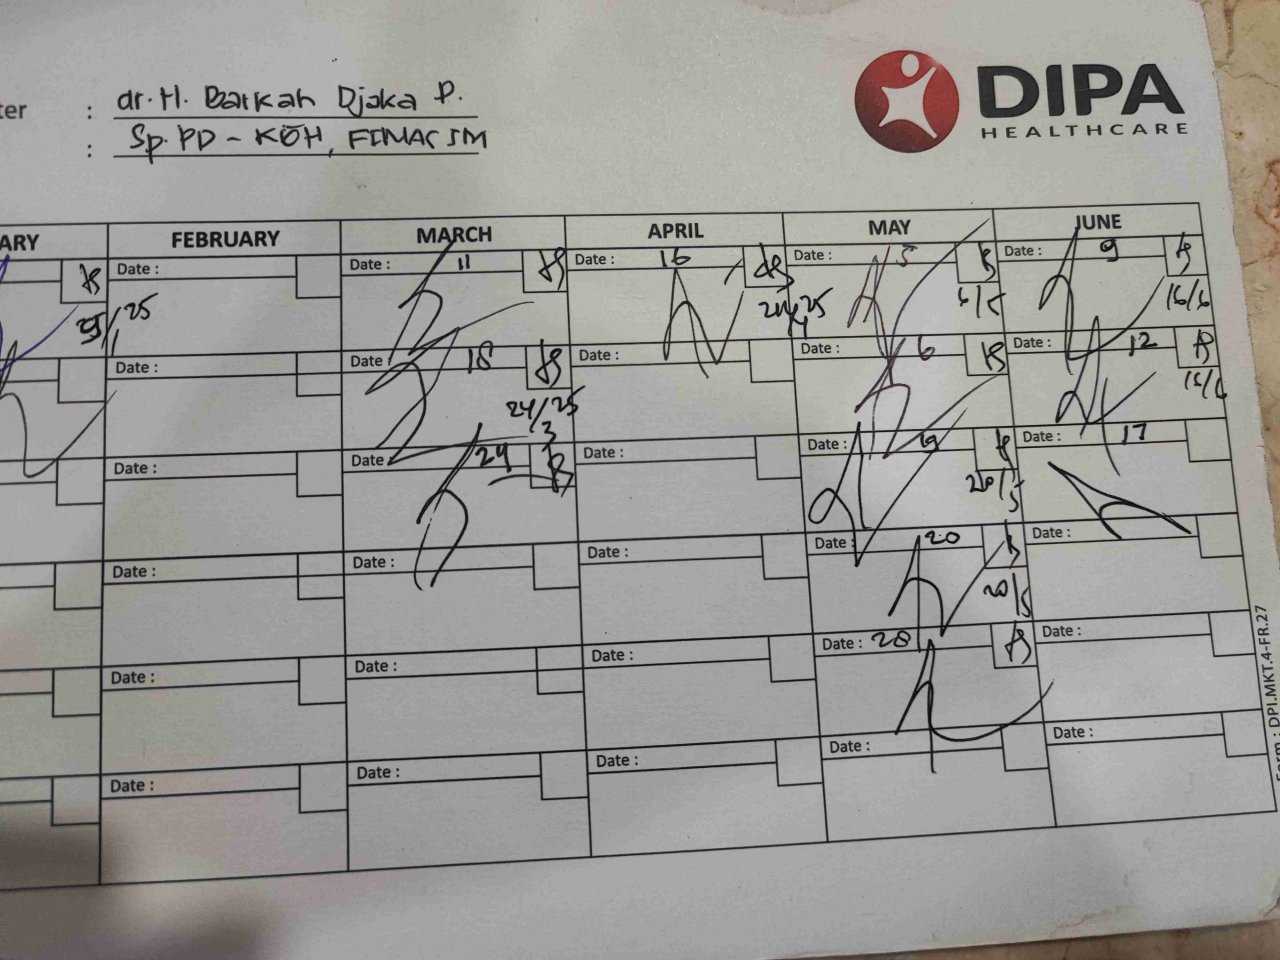 DIPA
HEALTHCARE
ter : dr. H. Barkah Djaka P.
: Sp. PD - KOH, FINACIM
ARY FEBRUARY MARCH APRIL MAY JUNE
Date : Date : 11 Date : 16 Date : 5 Date : 9
25/1 25 24/4 25 6/5 16/6
Date : Date : 18 Date : Date : 6 Date : 12
24/3 25 16/6
Date : Date : 24 Date : Date : 19 Date : 17
20/5
Date : Date : Date : Date : 20 Date :
20/5
Date : Date : Date : Date : 28 Date :
Date : Date : Date : Date : Date :
Form : DPI.MKT.4-FR.27